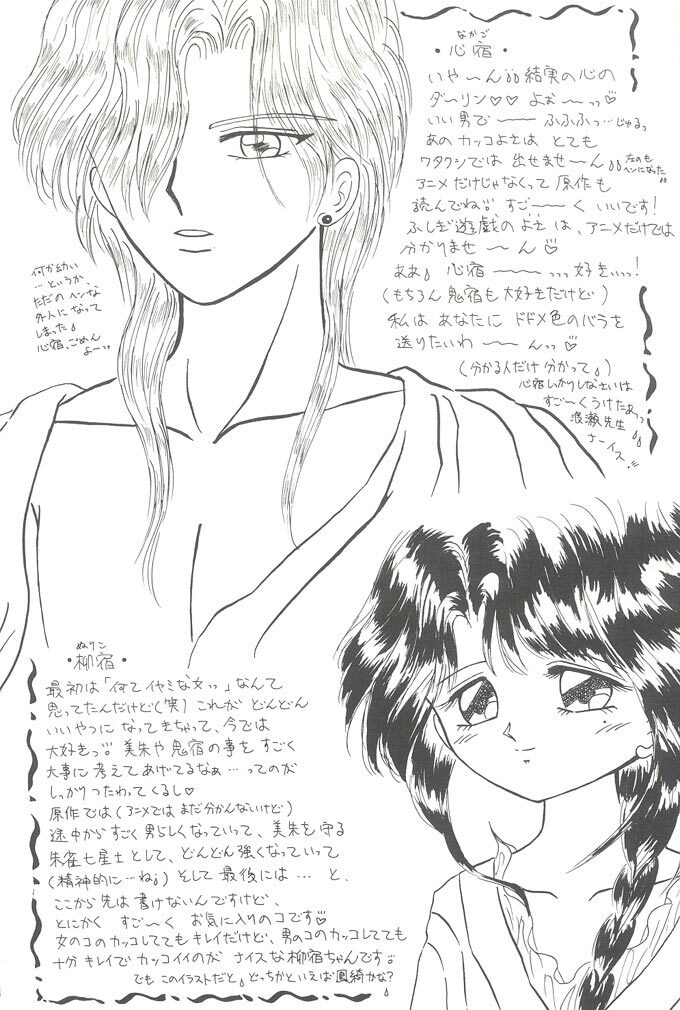 なかご
・心宿・
いや〜ん 結実の心の
ダーリン♡♡ よぉ〜〜っっ♡
いい男で〜〜 ふふふっ…じゃるっ
あの カッコよさは とても
ワタクシでは 出せませ〜ん
左のも
ヘンになった
アニメだけじゃなくって 原作も
読んでね すご〜〜く いいです!
ふしぎ遊戯の よさ は、アニメだけでは
分かりませ〜ん♡
ああ 心宿〜〜〜っっっ好きぃっっ!
(もちろん 鬼宿も 大好きだけど)
私は あなたに ドドメ色のバラを
送りたいわ〜〜んっっ♡
(分かる人だけ 分かって)
心宿しかりしなさいは
すご〜くうけたぁっっ
渡瀬先生
ナーイス!!
何か幼い
…というか、
ただの ヘンな
外人に なって
しまった
心宿、ごめん
よーっっ
ぬりこ
・柳宿・
最初は「何て イヤミな女っっ」なんて
思ってたんだけど(笑) これが どんどん
いいやつに なってきちゃって、今では
大好きっ 美朱や 鬼宿の事を すごく
大事に 考えて あげてるなぁ…ってのが
しっかり つたわって くるし♡
原作では(アニメでは まだ分かんないけど)
途中から すごく 男らしくなっていって、美朱を守る
朱雀七星士として、どんどん強くなっていって
(精神的に…ね) そして 最後には … と、
ここから先は 書けないんですけど、
とにかく すご〜く お気に入りのコです♡
女のコのカッコしてても キレイだけど、男のコのカッコしてても
十分 キレイで カッコイイのが ナイスな柳宿ちゃんです
でも このイラストだと、どっちかといえば 鳳綺かな?